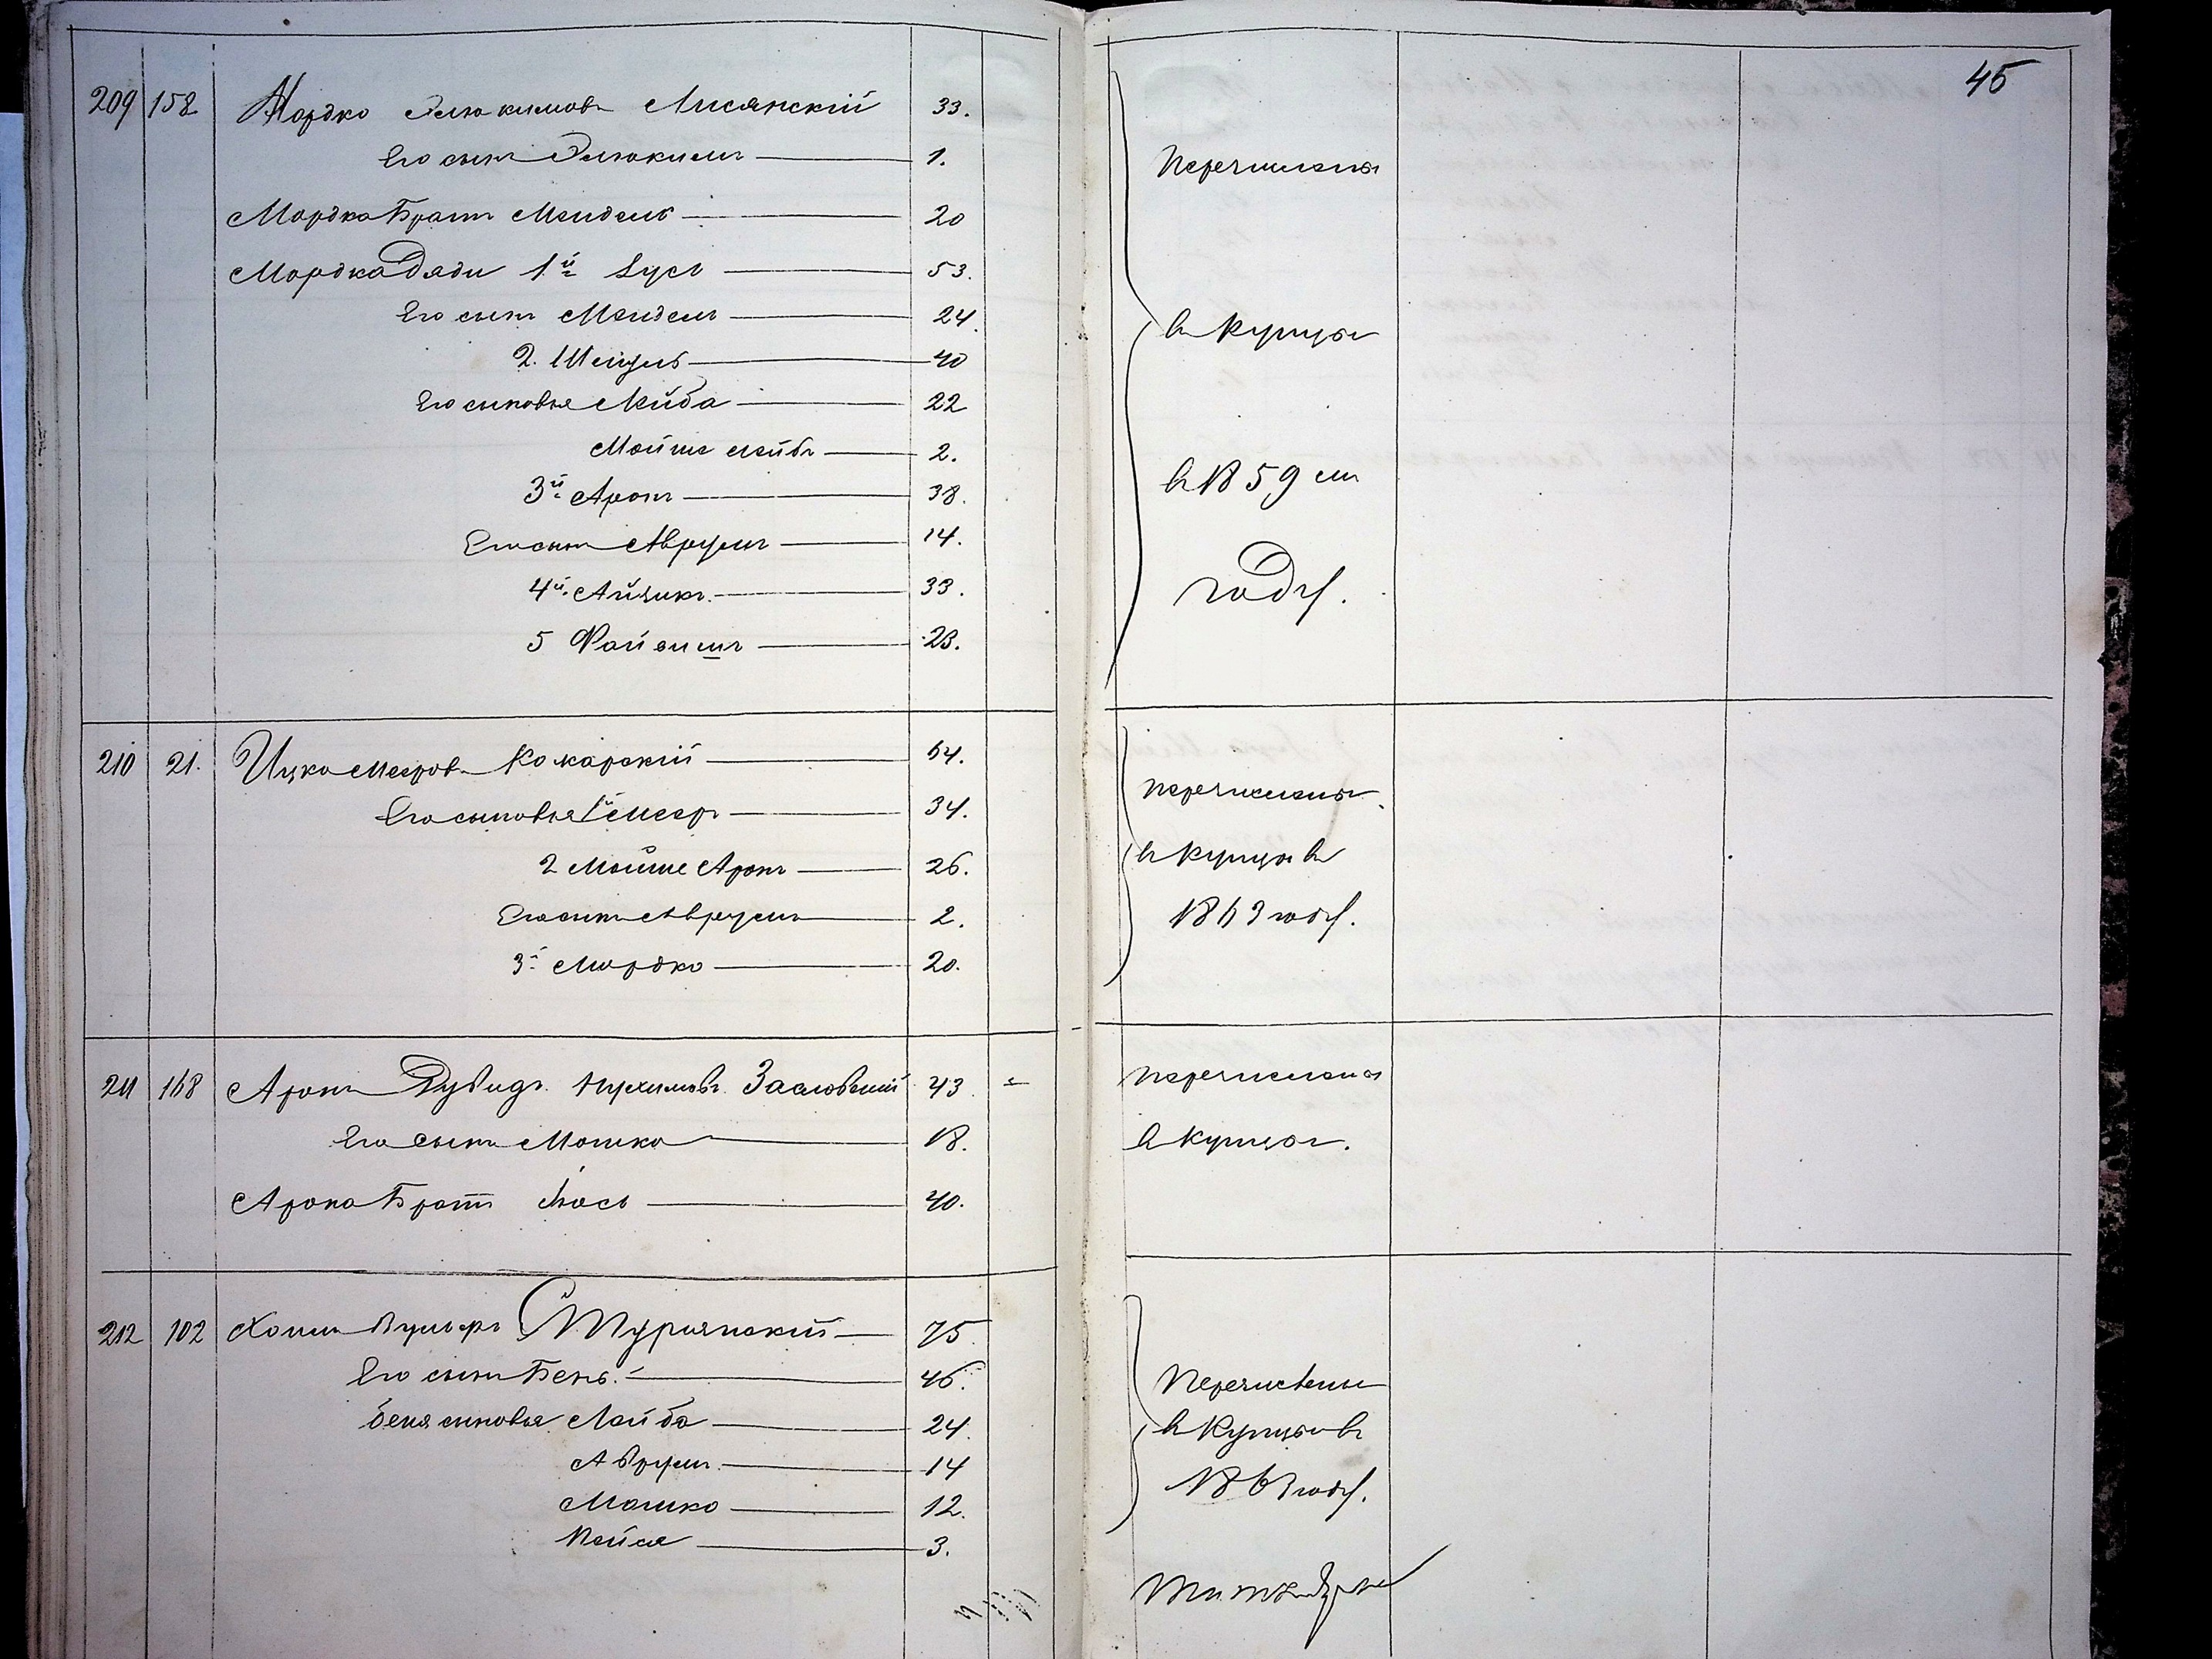 45
209 158 Мордко Элюкимовъ Лисянскій 33.
Его сынъ Элюкимъ 1.
Мордка Братъ Мендель 20
Мордка Дяди 1й Зусь 53.
Его сынъ Мендель 24.
2. Шендль 40
Его сыновья Лейба 22
Мойше Лейбъ 2.
3й Аронъ 38.
Его сынъ Аврумъ 14.
4й Айзикъ 33.
5 Файвишъ 23.
Перечислены
въ купцы
въ 1859 мъ
году.
210 21. Ицко Мееровъ Комарскій 64.
Его сыновья 1й Мееръ 34.
2 Мойше Аронъ 26.
Его сынъ Аврумъ 2.
3й Мордко 20.
перечислены
въ купцы въ
1863 году.
211 168 Аронъ Дувидъ Нухимовъ Заславскій 43.
Его сынъ Мошко 18.
Арона Братъ Іось 40.
перечислены
въ купцы.
212 102 Хаимъ Вульфъ Турянскій 75
Его сынъ Бень 46.
Беня сыновья Лейба 24.
Аврумъ 14
Мошко 12.
Пейся 3.
Перечислены
въ Купцы въ
1863 году.